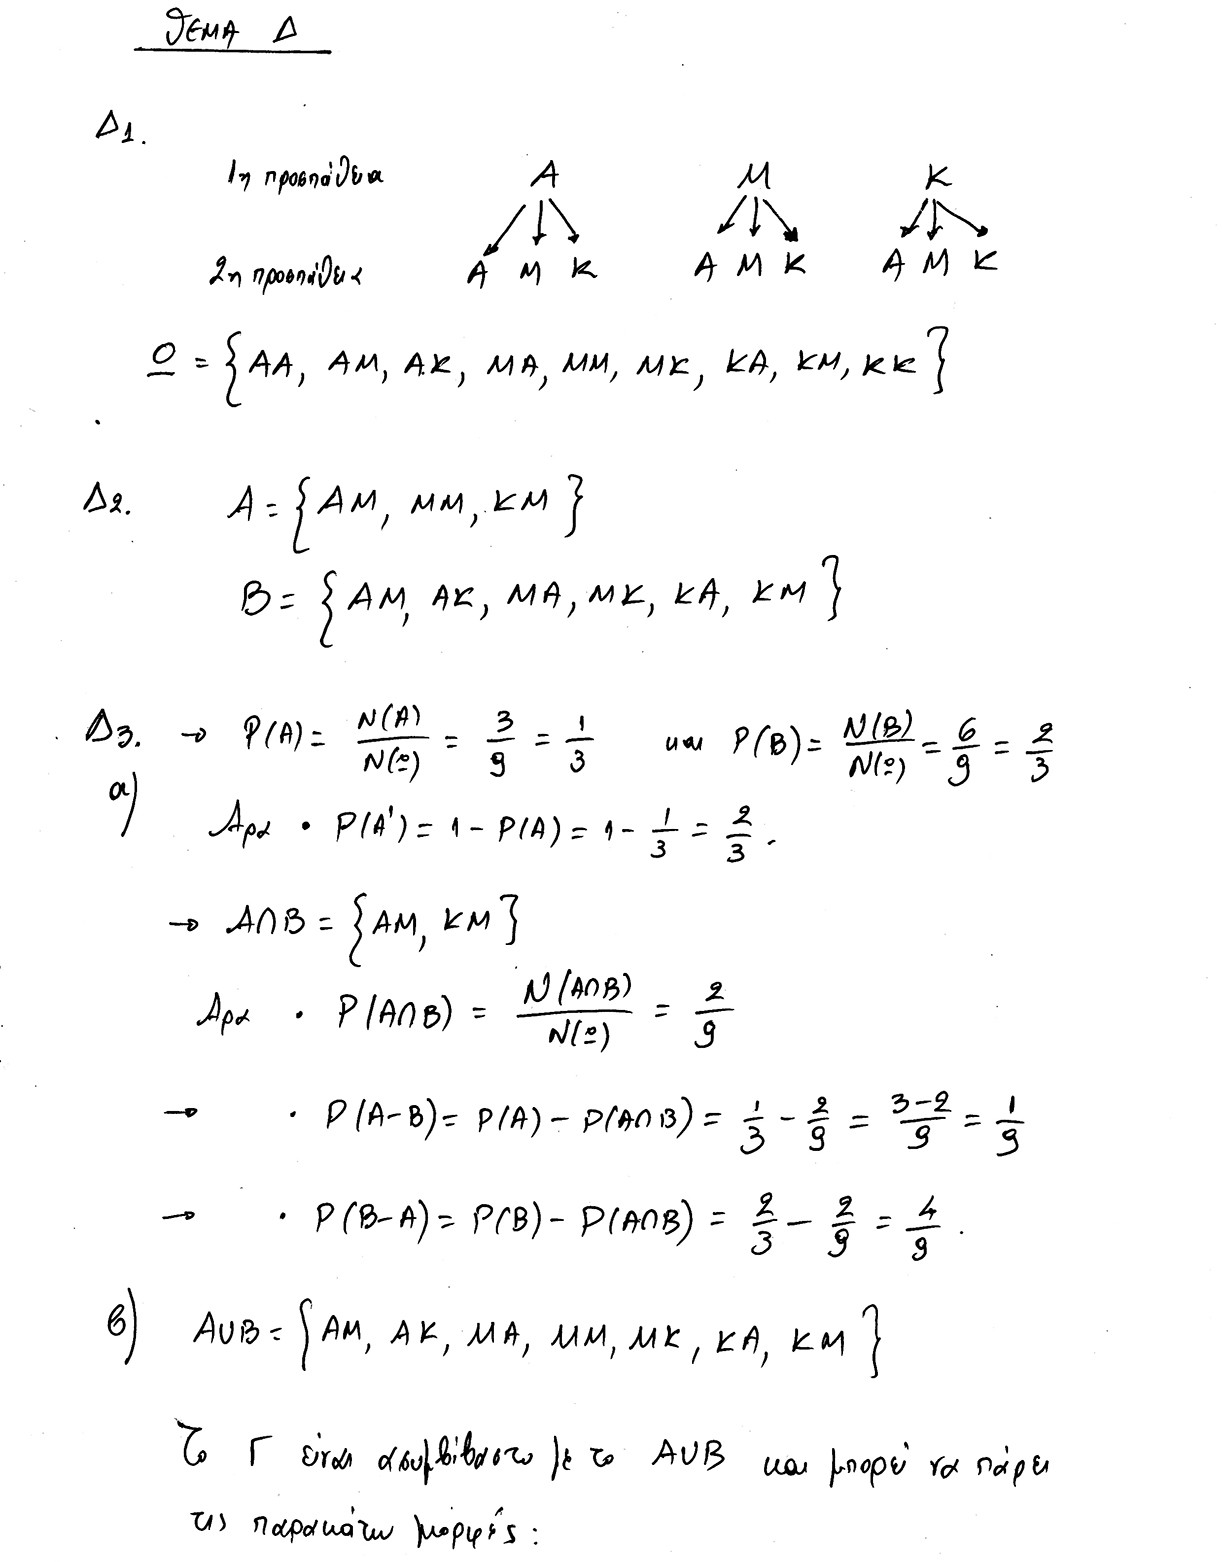 ΘΕΜΑ Δ
Δ1.
1η προσπάθεια A M K
2η προσπάθεια A M K A M K A M K
Ω = {AA, AM, AK, MA, MM, MK, KA, KM, KK}
Δ2. A = {AM, MM, KM}
B = {AM, AK, MA, MK, KA, KM}
Δ3. → P(A) = N(A)/N(Ω) = 3/9 = 1/3 και P(B) = N(B)/N(Ω) = 6/9 = 2/3
α) Άρα • P(A') = 1 - P(A) = 1 - 1/3 = 2/3.
→ A∩B = {AM, KM}
Άρα • P(A∩B) = N(A∩B)/N(Ω) = 2/9
→ • P(A-B) = P(A) - P(A∩B) = 1/3 - 2/9 = 3-2/9 = 1/9
→ • P(B-A) = P(B) - P(A∩B) = 2/3 - 2/9 = 4/9.
β) A∪B = {AM, AK, MA, MM, MK, KA, KM}
Το Γ είναι ασυμβίβαστο με το A∪B και μπορεί να πάρει
τις παρακάτω μορφές: